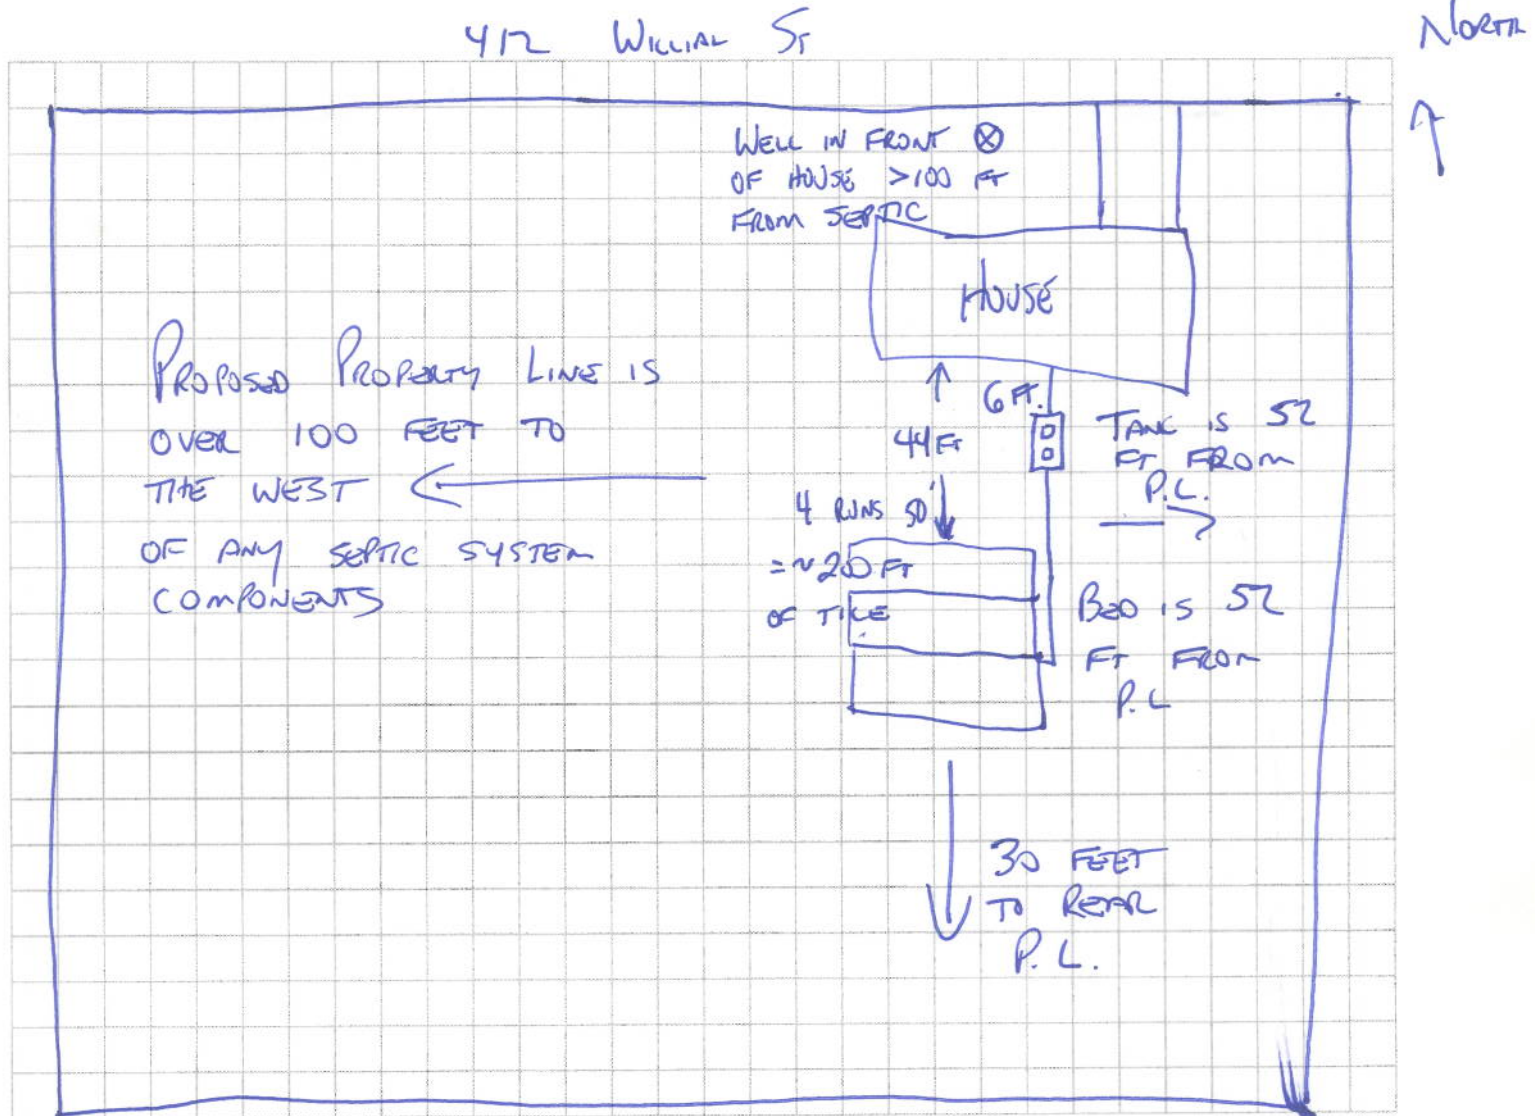 412 WILLIAM ST
NORTH
WELL IN FRONT
OF HOUSE >100 FT
FROM SEPTIC
HOUSE
PROPOSED PROPERTY LINE IS
OVER 100 FEET TO
THE WEST
OF ANY SEPTIC SYSTEM
COMPONENTS
6 FT.
44 FT
TANK IS 52
FT FROM
P.L.
4 RUNS 50'
= ~200 FT
OF TILE
BED IS 52
FT FROM
P.L
30 FEET
TO REAR
P.L.